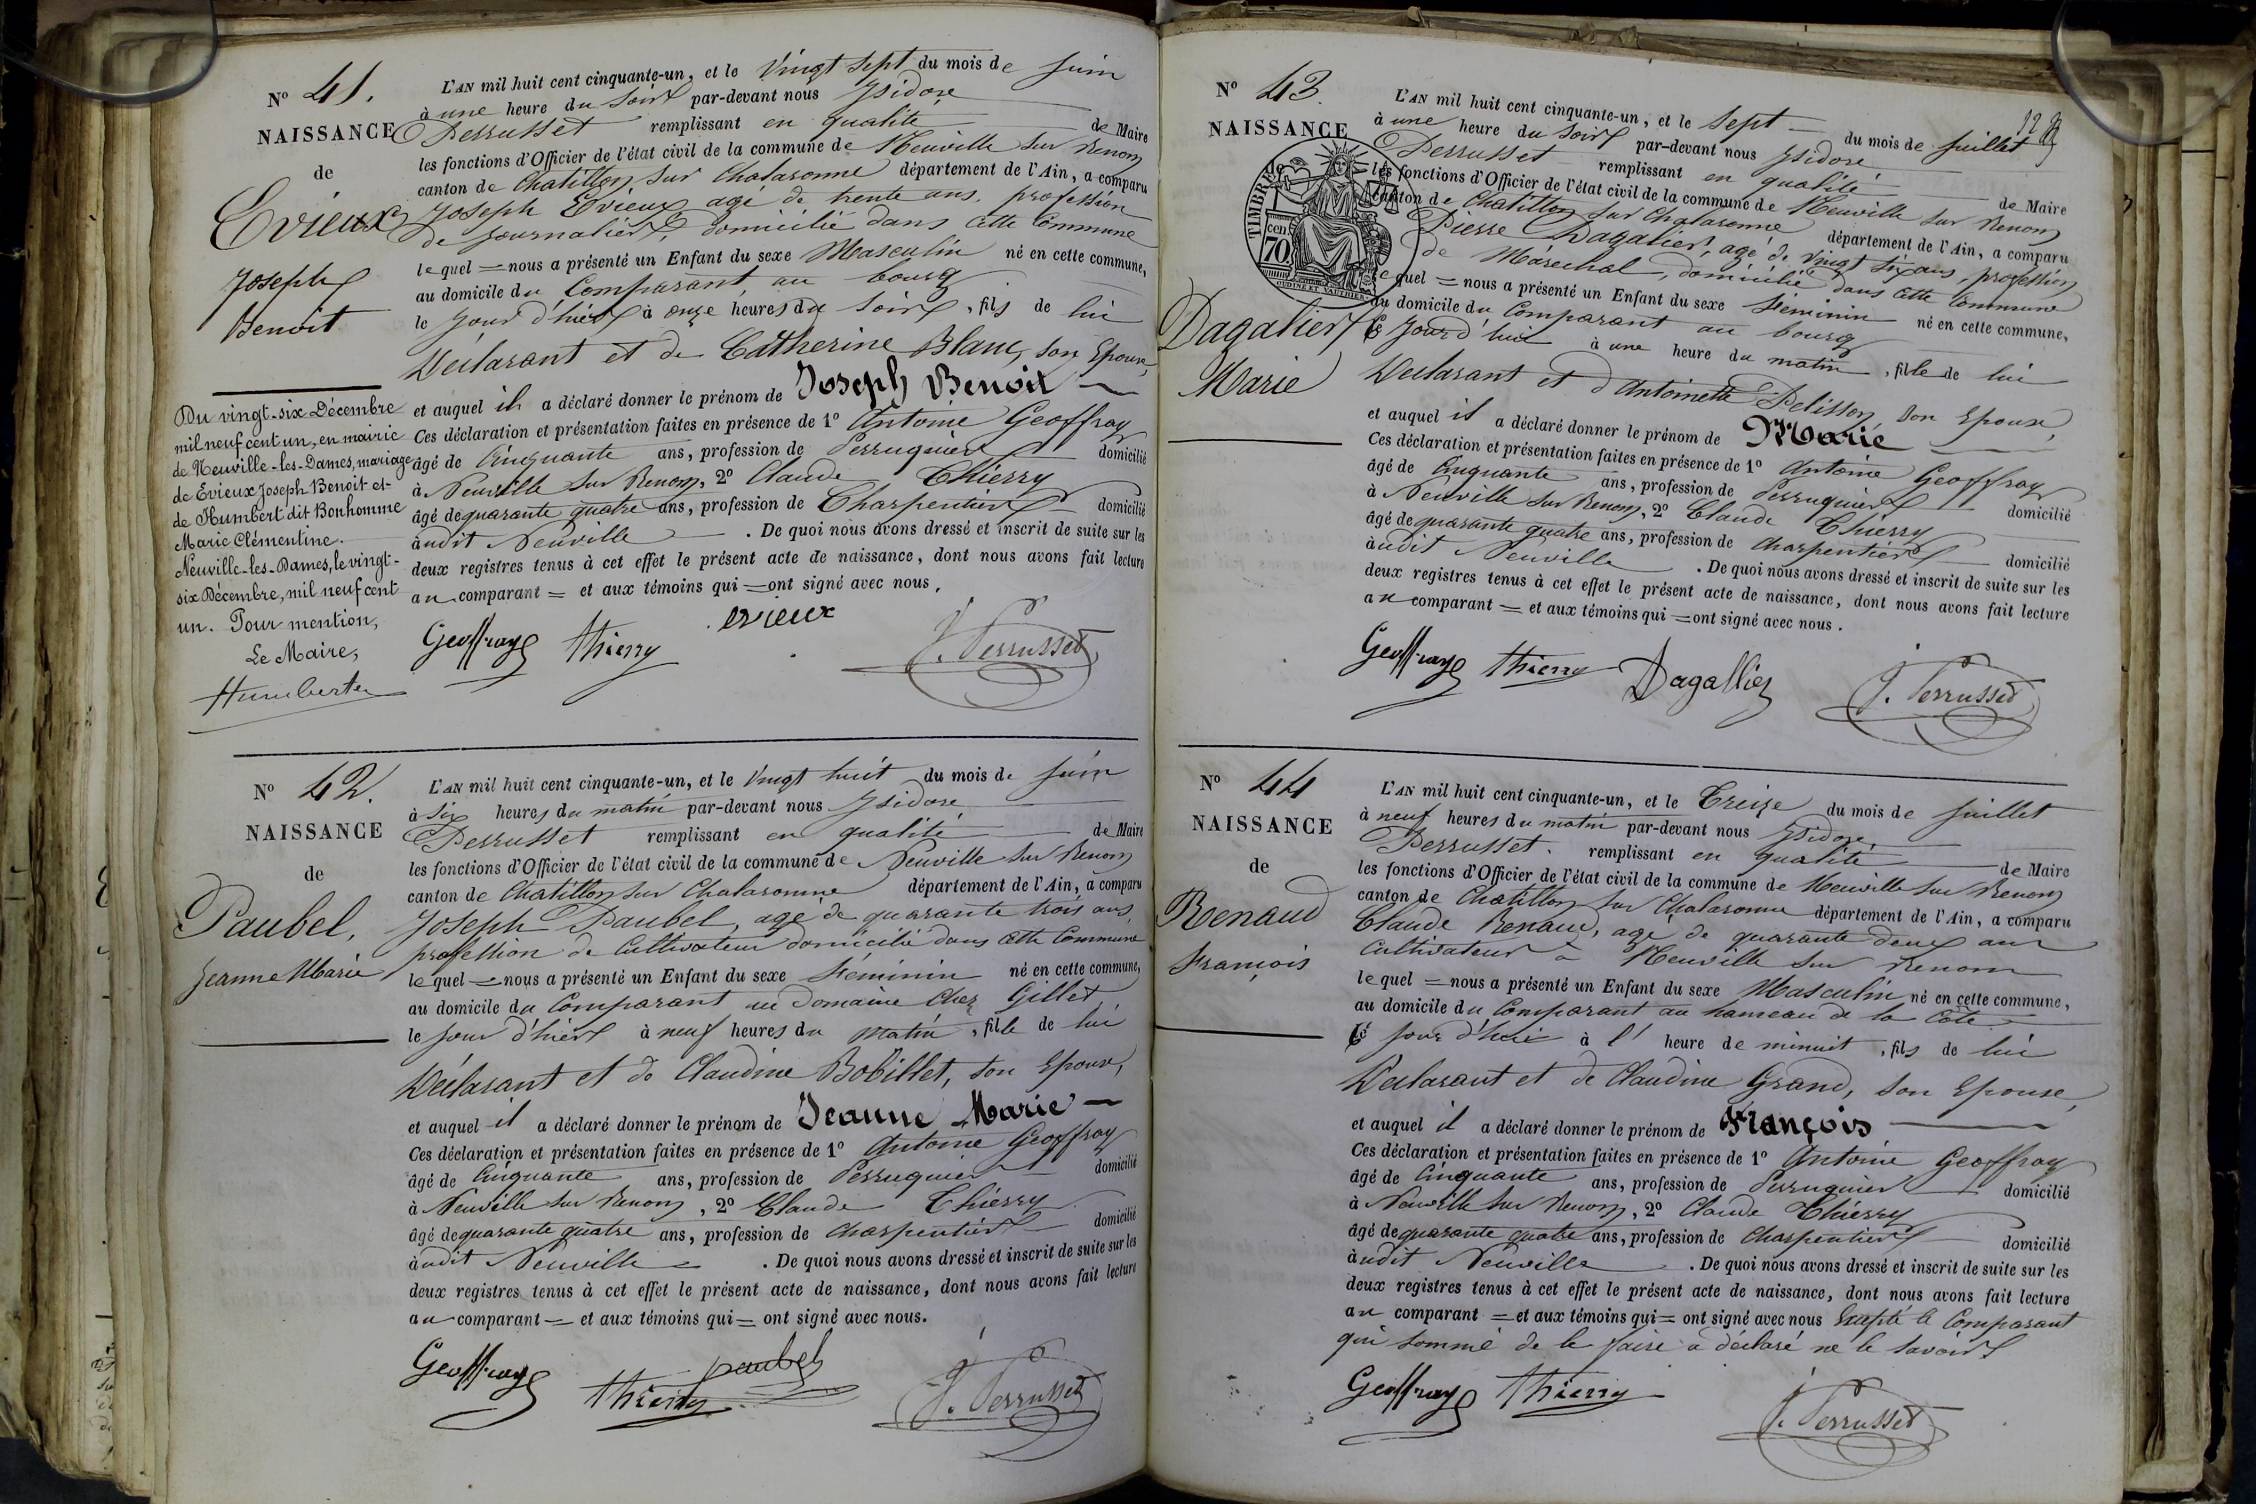 N° 41.
NAISSANCE
de
Evieux
Joseph
Benoit
Du vingt-six Décembre
mil neuf cent un, en mairie
de Neuville-les-Dames, mariage
de Evieux Joseph Benoit et
de Humbert dit Bonhomme
Marie Clémentine.
Neuville-les-Dames, le vingt-
six Décembre, mil neuf cent
un. Pour mention,
Le Maire,
L'AN mil huit cent cinquante-un, et le Vingt Sept du mois de Juin
à une heure du Soir par-devant nous Isidore
Perrusset remplissant en qualité de Maire
les fonctions d'Officier de l'état civil de la commune de Neuville sur Renon
canton de Chatillon sur Chalaronne département de l'Ain, a comparu
Joseph Evieux, agé de trente ans, profession
de Journalier, domicilié dans cette Commune
lequel = nous a présenté un Enfant du sexe Masculin né en cette commune,
au domicile du Comparant, au bourg
le jour d'hier à onze heures du Soir, fils de lui
Déclarant et de Catherine Blanc, son Epouse,
et auquel il a déclaré donner le prénom de Joseph Benoit
Ces déclaration et présentation faites en présence de 1° Antoine Geoffray
âgé de Cinquante ans, profession de Perruquier domicilié
à Neuville sur Renon, 2° Claude Thierry
âgé de quarante quatre ans, profession de Charpentier domicilié
audit Neuville . De quoi nous avons dressé et inscrit de suite sur les
deux registres tenus à cet effet le présent acte de naissance, dont nous avons fait lecture
au comparant = et aux témoins qui = ont signé avec nous.
Geoffray thierry evieux J. Perrusset
N° 42.
NAISSANCE
de
Paubel,
Jeanne Marie
L'AN mil huit cent cinquante-un, et le Vingt huit du mois de Juin
à Six heures du matin par-devant nous Isidore
Perrusset remplissant en qualité de Maire
les fonctions d'Officier de l'état civil de la commune de Neuville sur Renon
canton de Chatillon sur Chalaronne département de l'Ain, a comparu
Joseph Paubel, agé de quarante trois ans,
profession de Cultivateur domicilié dans cette Commune
lequel = nous a présenté un Enfant du sexe Féminin né en cette commune,
au domicile du Comparant au Domaine Chez Gillet,
le jour d'hier à neuf heures du matin, fille de lui
Déclarant et de Claudine Bobillet, son Epouse,
et auquel il a déclaré donner le prénom de Jeanne Marie
Ces déclaration et présentation faites en présence de 1° Antoine Geoffray
âgé de Cinquante ans, profession de Perruquier domicilié
à Neuville sur Renon, 2° Claude Thierry
âgé de quarante quatre ans, profession de Charpentier domicilié
audit Neuville . De quoi nous avons dressé et inscrit de suite sur les
deux registres tenus à cet effet le présent acte de naissance, dont nous avons fait lecture
au comparant = et aux témoins qui = ont signé avec nous.
Geoffray thierry paubel J. Perrusset
N° 43.
NAISSANCE
de
TIMBRE
70 cen
OUDINE ET VAUTHIER
Dagalier
Marie
L'AN mil huit cent cinquante-un, et le Sept du mois de Juillet
à une heure du Soir par-devant nous Isidore
Perrusset remplissant en qualité de Maire
les fonctions d'Officier de l'état civil de la commune de Neuville sur Renon
canton de Chatillon sur Chalaronne département de l'Ain, a comparu
Pierre Dagalier, agé de vingt six ans, profession
de Maréchal, domicilié dans cette Commune
lequel = nous a présenté un Enfant du sexe Féminin né en cette commune,
au domicile du Comparant au bourg
le Jourd'hui à une heure du matin, fille de lui
Déclarant et d'Antoinette Pelisson, son Epouse,
et auquel il a déclaré donner le prénom de Marie
Ces déclaration et présentation faites en présence de 1° Antoine Geoffray
âgé de Cinquante ans, profession de Perruquier domicilié
à Neuville sur Renon, 2° Claude Thierry
âgé de quarante quatre ans, profession de Charpentier domicilié
audit Neuville . De quoi nous avons dressé et inscrit de suite sur les
deux registres tenus à cet effet le présent acte de naissance, dont nous avons fait lecture
au comparant = et aux témoins qui = ont signé avec nous.
Geoffray thierry Dagallier J. Perrusset
N° 44
NAISSANCE
de
Renaud
François
L'AN mil huit cent cinquante-un, et le Treize du mois de Juillet
à neuf heures du matin par-devant nous Isidore
Perrusset remplissant en qualité de Maire
les fonctions d'Officier de l'état civil de la commune de Neuville sur Renon
canton de Chatillon sur Chalaronne département de l'Ain, a comparu
Claude Renaud, agé de quarante deux ans
Cultivateur à Neuville sur Renon
lequel = nous a présenté un Enfant du sexe Masculin né en cette commune,
au domicile du Comparant au hameau de la Côte
le jour d'hui à l'heure de minuit, fils de lui
Déclarant et de Claudine Grand, son Epouse,
et auquel il a déclaré donner le prénom de François
Ces déclaration et présentation faites en présence de 1° Antoine Geoffray
âgé de Cinquante ans, profession de Perruquier domicilié
à Neuville sur Renon, 2° Claude Thierry
âgé de quarante quatre ans, profession de Charpentier domicilié
audit Neuville . De quoi nous avons dressé et inscrit de suite sur les
deux registres tenus à cet effet le présent acte de naissance, dont nous avons fait lecture
au comparant = et aux témoins qui = ont signé avec nous Excepté le Comparant
qui sommé de le faire a déclaré ne le savoir
Geoffray thierry J. Perrusset